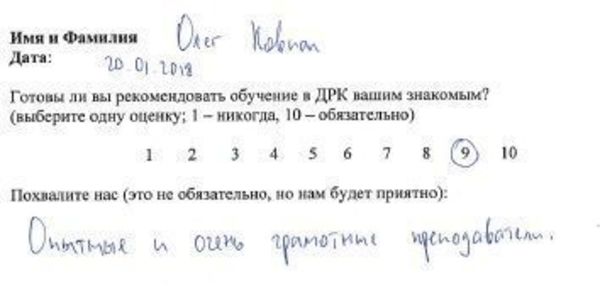 Имя и Фамилия Олег
Дата: 20.01.2018
Готовы ли вы рекомендовать обучение в ДРК вашим знакомым?
(выберите одну оценку; 1 – никогда, 10 – обязательно)
1 2 3 4 5 6 7 8 9 10
Похвалите нас (это не обязательно, но нам будет приятно):
Опытные и очень грамотные преподаватели.